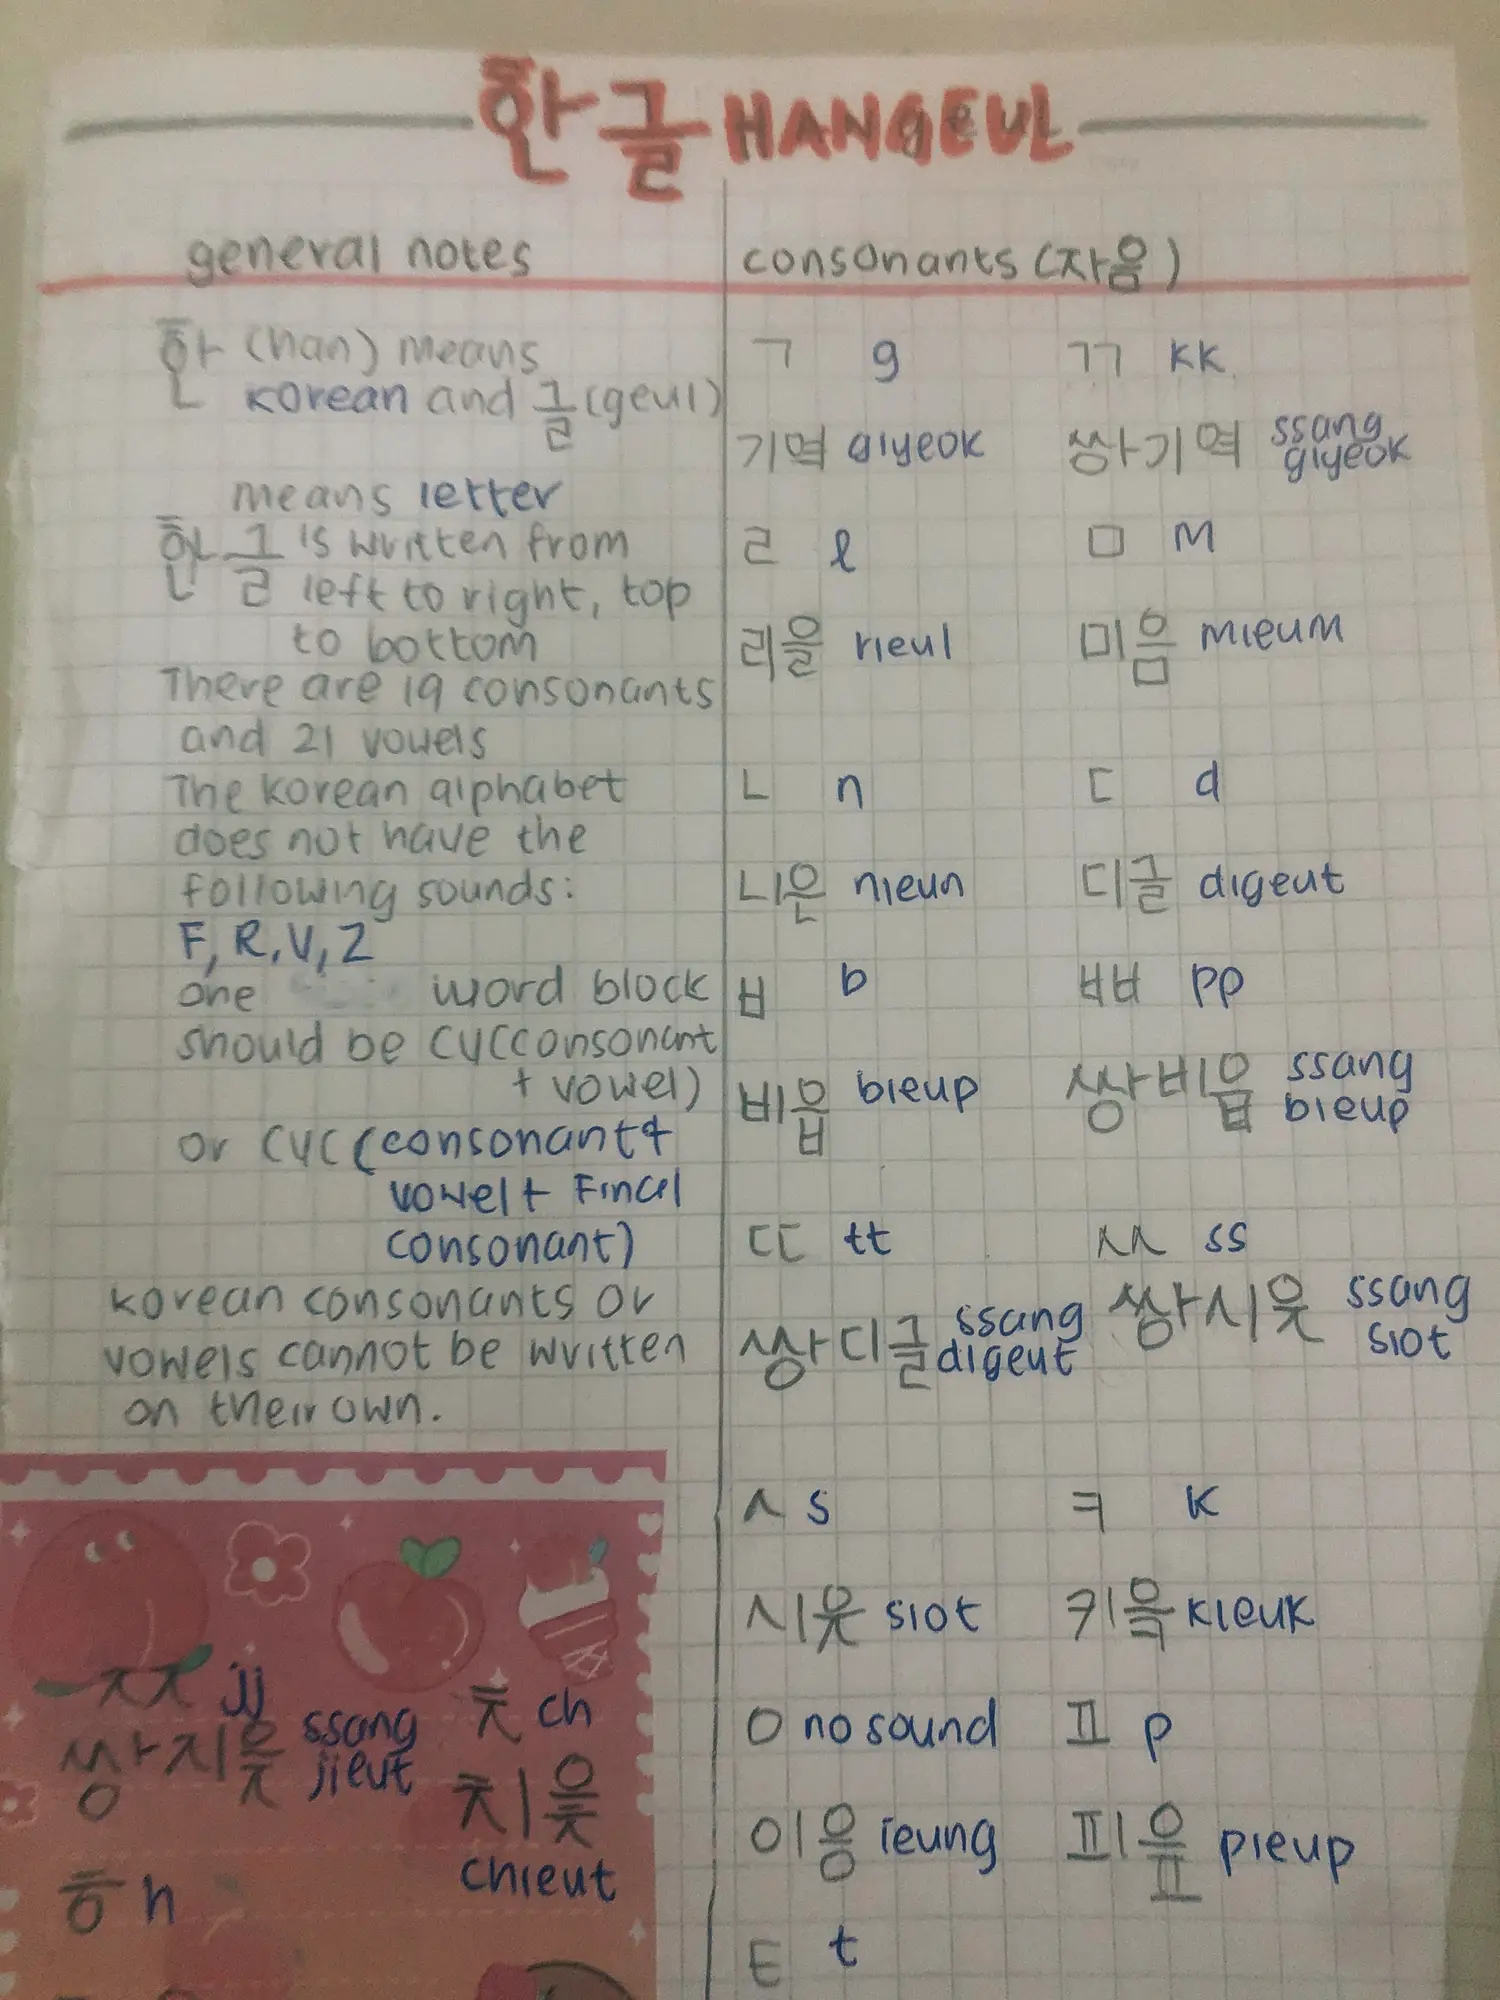 한글 HANGEUL
general notes
한 (han) means
korean and 글(geul)
means letter
한글 is written from
left to right, top
to bottom
There are 19 consonants
and 21 vowels
The korean alphabet
does not have the
following sounds:
F, R, V, Z
one word block
should be CV(consonant
+ vowel)
or CVC (consonant +
vowel + Final
consonant)
korean consonants or
vowels cannot be written
on their own.
ㅉ jj
쌍지읒 ssang jieut
ㅊ ch
치읓
chieut
ㅎ h
consonants (자음)
ㄱ g ㄲ kk
기역 giyeok 쌍기역 ssang giyeok
ㄹ l ㅁ m
리을 rieul 미음 mieum
ㄴ n ㄷ d
니은 nieun 디귿 digeut
ㅂ b ㅃ pp
비읍 bieup 쌍비읍 ssang bieup
ㄸ tt ㅆ ss
쌍디귿 ssang digeut 쌍시옷 ssang siot
ㅅ s ㅋ k
시옷 siot 키읔 kieuk
ㅇ no sound ㅍ p
이응 ieung 피읖 pieup
ㅌ t